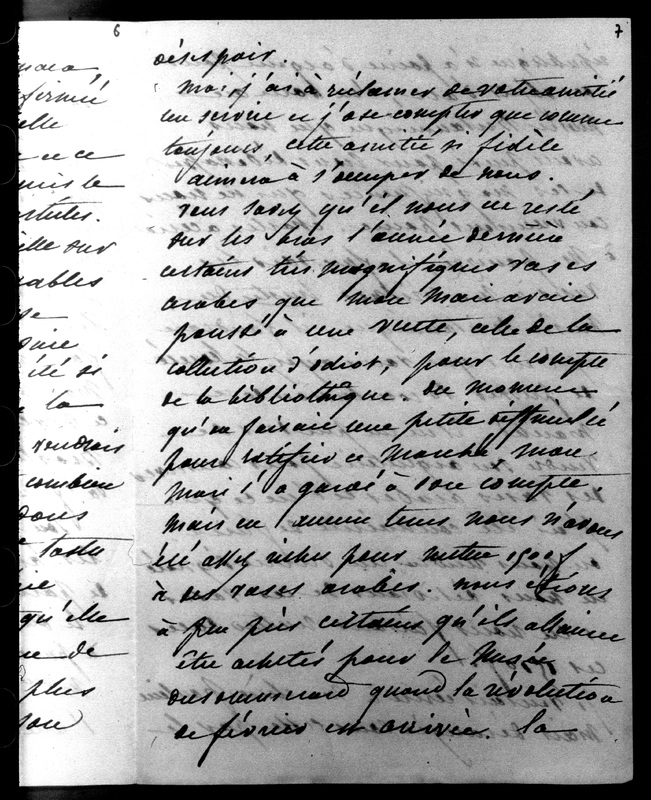 6
7
maria,
firmié
elle
ce ce
mis le
elle sur
ables
se
été si
la
voudrais
combien
dous
tastu
qu'elle
de
plus
son
désespoir.
Moi j'ai à réclamer de votre amitié
un service et j'ose compter que comme
toujours cette amitié si fidèle
aimera à s'occuper de nous.
vous savez qu'il nous est resté
sur les bras l'année dernière
certains très magnifiques vases
arabes que mon mari avait
poussé à une vente, celle de la
collection d'odiot, pour le compte
de la bibliothèque. Du moment
qu'on faisait une petite difficulté
pour ratifier ce marché mon
mari l'a gardé à son compte.
mais en aucun tems nous n'avons
été assez riches pour mettre 1500 f
à des vases arabes. nous étions
à peu près certains qu'ils allaient
être achetés pour le Musée
Dusommerard quand la révolution
de février est arrivée. la